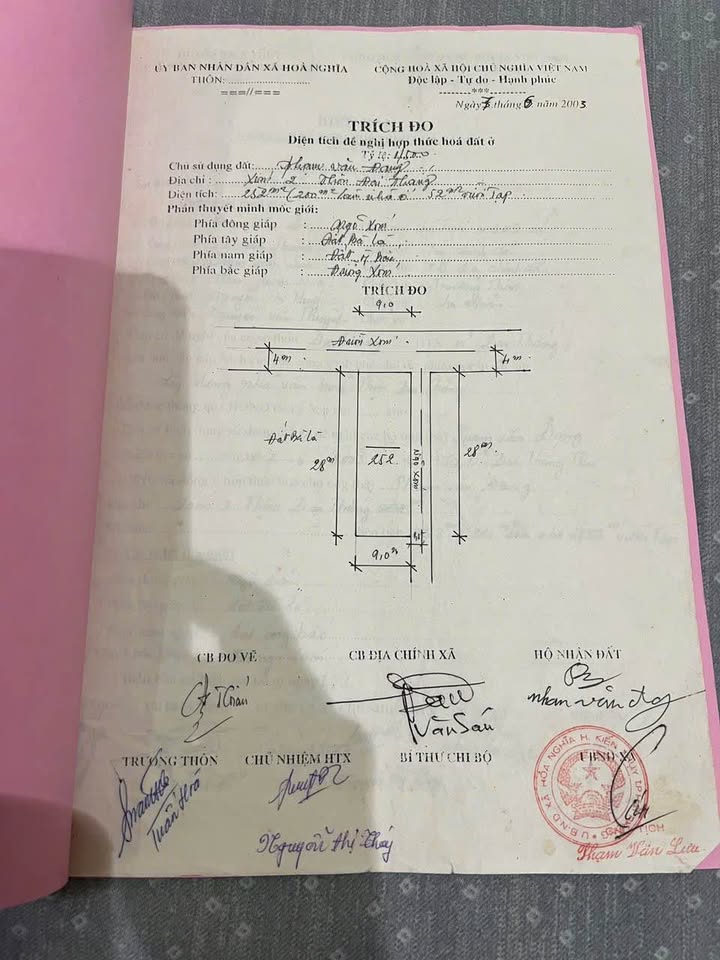 ỦY BAN NHÂN DÂN XÃ HOÀ NGHĨA
CỘNG HOÀ XÃ HỘI CHỦ NGHĨA VIỆT NAM
THÔN:
Độc lập - Tự do - Hạnh phúc
===//===
***
Ngày 7 tháng 6 năm 2003
TRÍCH ĐO
Diện tích đề nghị hợp thức hoá đất ở
Tỷ lệ: 1/500
Chủ sử dụng đất: Phạm Văn Đang
Địa chỉ : Xóm 2 Thôn Đại Thắng
Diện tích: 252m² (200m² làm nhà ở 52m² vườn Tạp
Phần thuyết minh mốc giới:
Phía đông giáp : Ngõ Xóm
Phía tây giáp : Đất Bà Là
Phía nam giáp : Đất
Phía bắc giáp : Đường Xóm
TRÍCH ĐO
9,0
Đường Xóm
4m
4m
Đất Bà Là
28m
252
Ngõ Xóm
28m
9,0m
CB ĐO VẼ
CB ĐỊA CHÍNH XÃ
HỘ NHẬN ĐẤT
Văn Sấu
TRƯỞNG THÔN
CHỦ NHIỆM HTX
BÍ THƯ CHI BỘ
UBND XÃ
U.B.N.D XÃ HÒA NGHĨA H. KIẾN THỤY TP HẢI PHÒNG
Nguyễn Thị Thúy
Phạm Văn Lưu